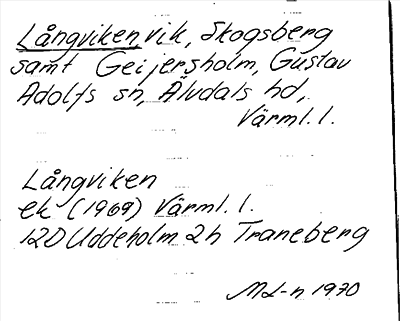 Långviken, vik, Skogsberg
samt Geijersholm, Gustav
Adolfs sn, Älvdals hd,
Värml. l.
Långviken
ek (1969) Värml. l.
12D Uddeholm 2h Traneberg
ML-n 1970